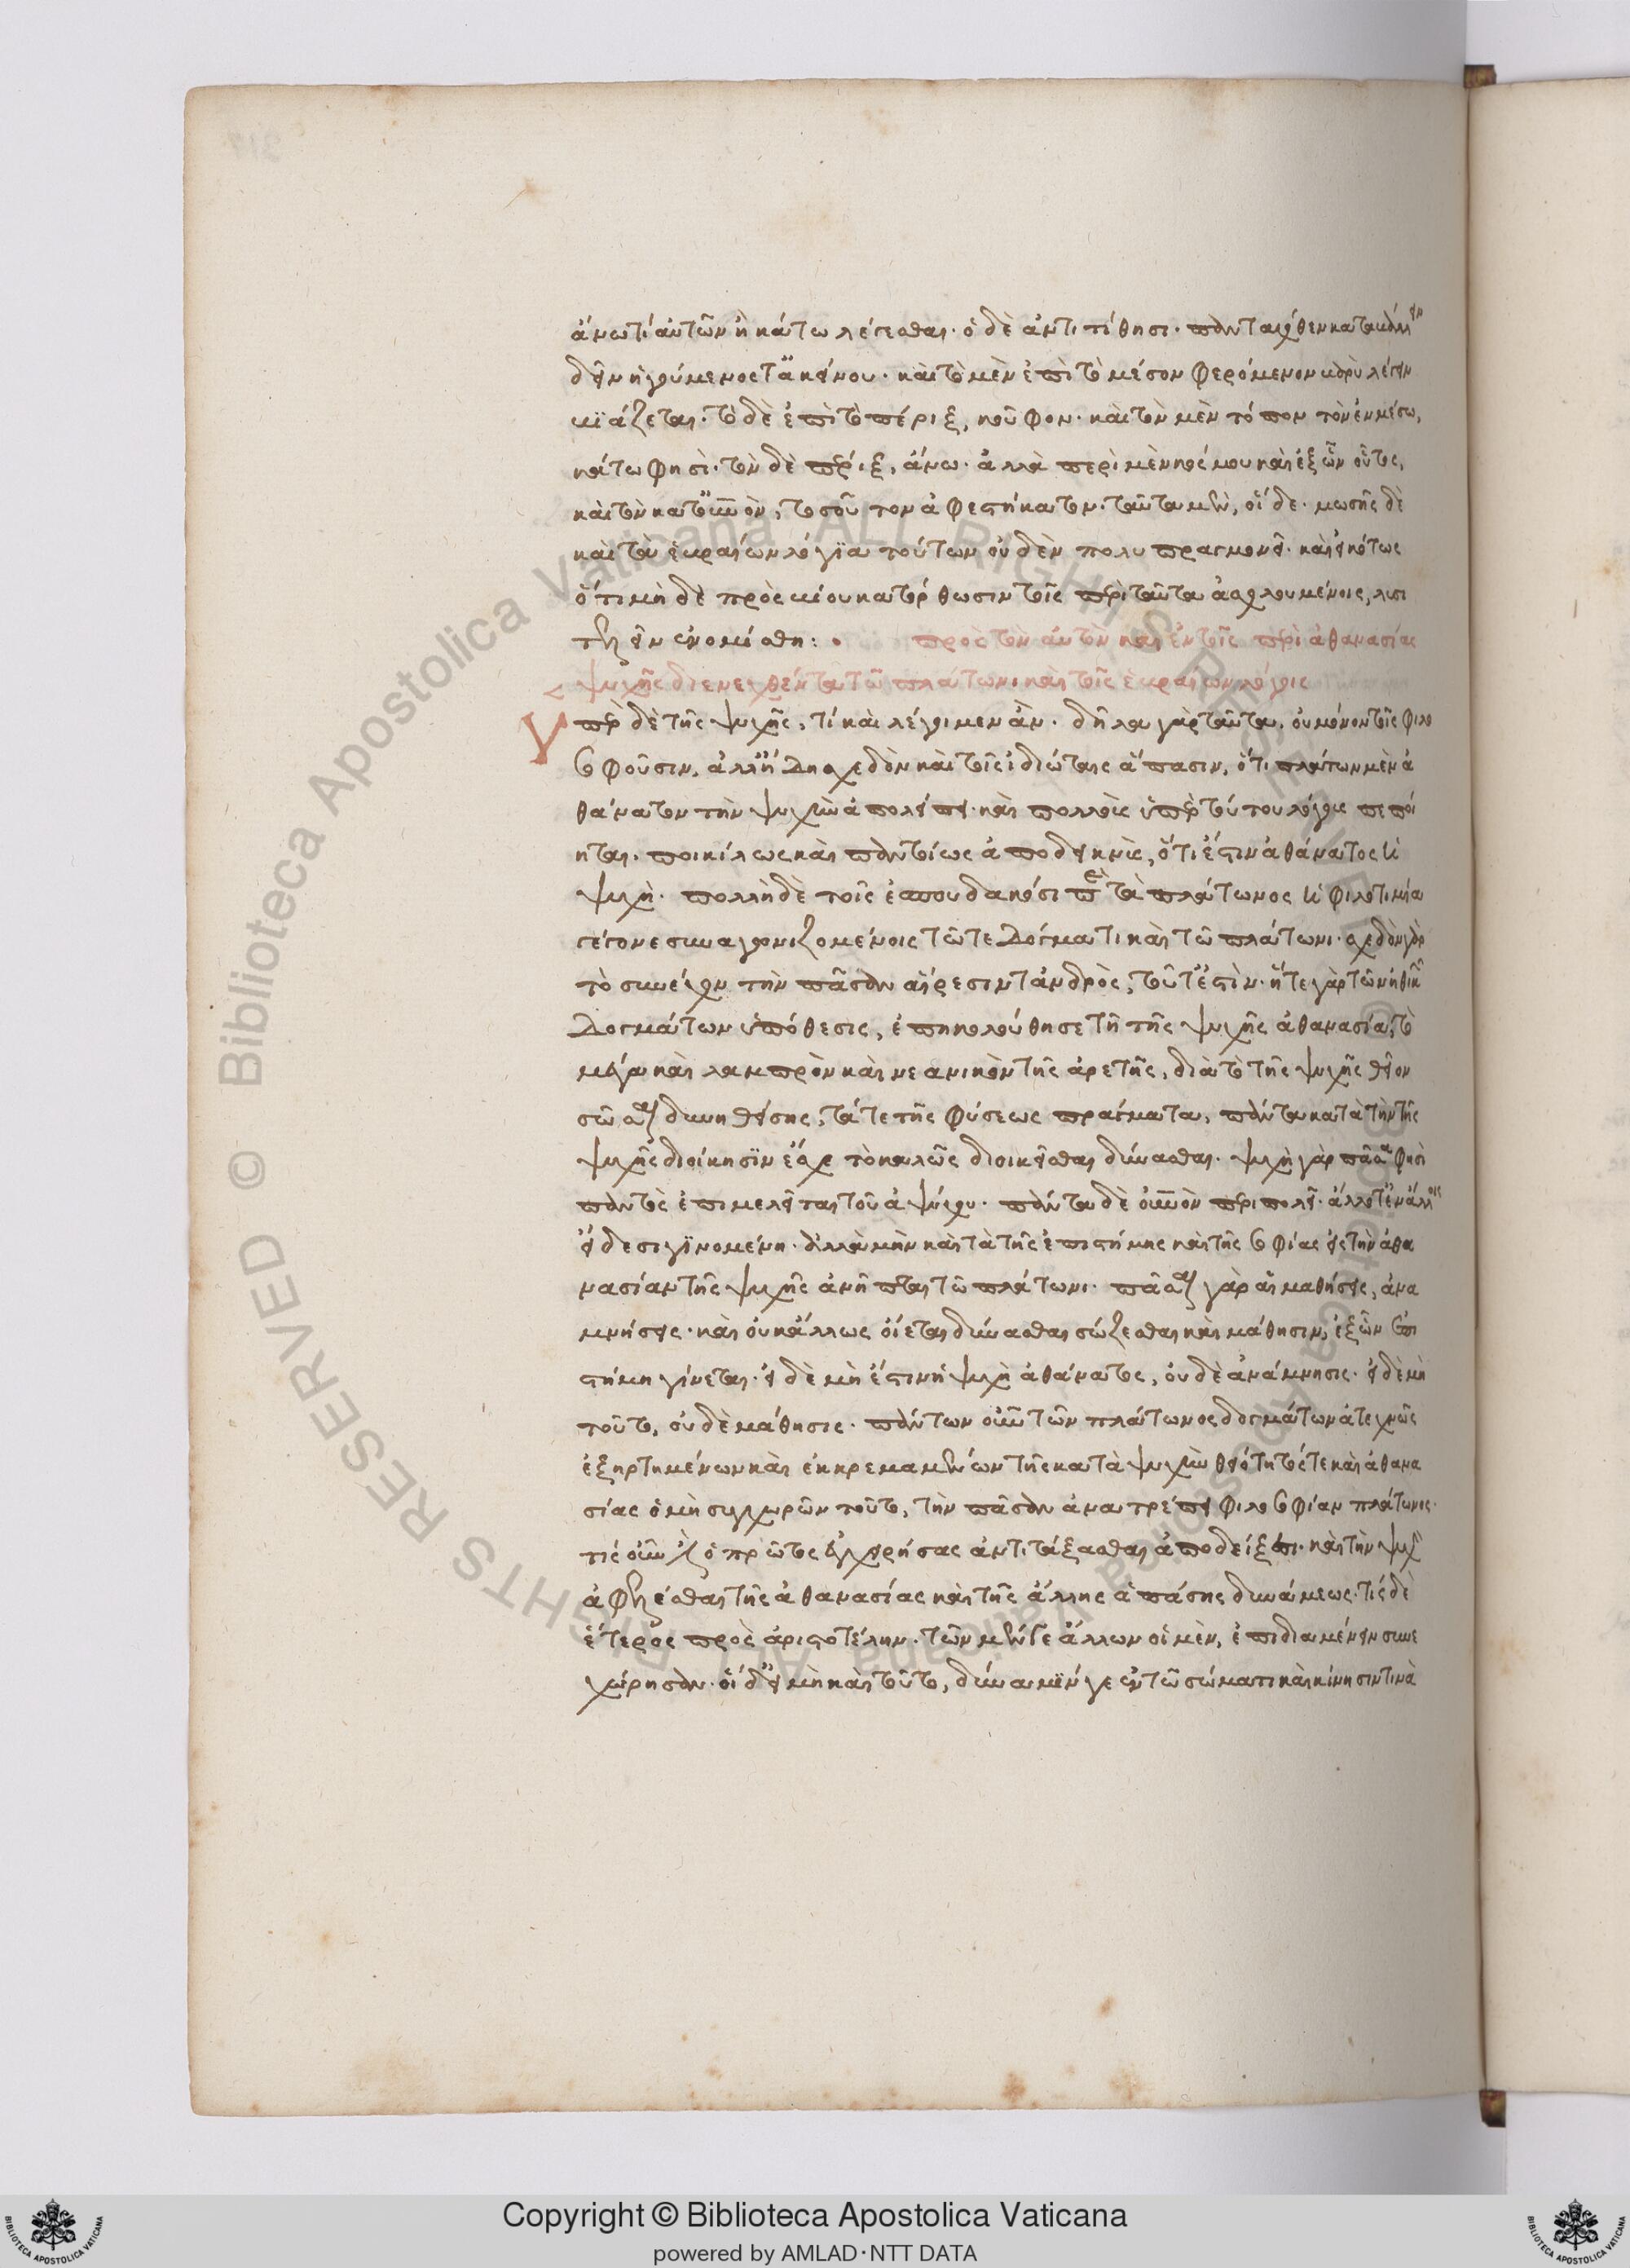 ἄνω τί αὐτῶν ἢ κάτω λέγεσθαι· ὁ δὲ ἀντιτίθησι· πανταχόθεν κατακλυ
δεῖν ἡγούμενος τἀκείνου· καὶ τὸ μὲν ἐπὶ τὸ μέσον φερόμενον βαρὺ λέγειν
βιάζεται· τὸ δὲ ἐπὶ τὸ πέριξ, κοῦφον· καὶ τὸν μὲν τόπον τὸν ἐν μέσω,
κάτω φησὶ· τὸν δὲ πέριξ, ἄνω· ἀλλὰ περὶ μὲν κόσμου καὶ ἐξ ὧν οὗτος,
καὶ τὸν κατ' οὐρανὸν, τοσοῦτον ἀφεστήκατον· ταῦτα μὲν, οἵδε· μωσῆς δὲ
καὶ τὰ ἑβραίων λόγϊα τούτων οὐδὲν πολυπραγμονεῖ· καὶ εἰκότως
ὅτι μὴ δὲ πρὸς βίου κατόρθωσιν τοῖς περὶ ταῦτα ἀσχολουμένοις, λυσι
τελεῖν ἐνομίσθη:
πρὸς τὸν αὐτὸν καὶ ἐν τοῖς περὶ ἀθανασίας
ψυχῆς διενεχθέντα τῶ πλάτωνι καὶ τοῖς ἑβραίων λόγοις
Ὑπὲρ δὲ τῆς ψυχῆς, τί καὶ λέγοιμεν ἂν· δῆλα γὰρ ταῦτα, οὐ μόνον τοῖς φιλο
σοφοῦσιν, ἀλλ' ἤδη σχεδὸν καὶ τοῖς ἰδιώταις ἅπασιν, ὅτι πλάτων μὲν ἀ
θάνατον τὴν ψυχὴν ἀπολείπει· καὶ πολλοὺς ὑπὲρ τούτου λόγους πεποί
ηται· ποικίλως καὶ παντοίως ἀποδεικνὺς, ὅτι ἐστιν ἀθάνατος ἡ
ψυχὴ· πολλὴ δὲ τοῖς ἐσπουδακόσι τὰ πλάτωνος ἡ φιλοτιμία
γέγονε συναγωνιζομένοις τῶ τε δόγματι καὶ τῶ πλάτωνι· σχεδὸν γὰρ
τὸ συνέχον τὴν πᾶσαν αἵρεσιν τἀνδρὸς, τοῦτ' ἐστὶν· ἥ τε γὰρ τῶν ἠθικῶν
δογμάτων ὑπόθεσις, ἐπηκολούθησε τῆ τῆς ψυχῆς ἀθανασία, τὸ
μέγα καὶ λαμπρὸν καὶ νεανικὸν τῆς ἀρετῆς, διὰ τὸ τῆς ψυχῆς θεῖον
σῶσαι δυνηθείσης, τά τε τῆς φύσεως πράγματα, πάντα κατὰ τὴν τῆς
ψυχῆς διοίκησϊν ἔσχε τὸ καλῶς διοικεῖσθαι δύνασθαι· ψυχὴ γὰρ πᾶσα φησὶ
παντὸς ἐπιμελεῖται τοῦ ἀψύχου· πάντα δὲ οὐρανὸν περιπολεῖ· ἄλλοτ' ἐν ἄλλοις
εἴδεσι γϊνομένη· ἀλλὰ μὴν καὶ τὰ τῆς ἐπιστήμης καὶ τῆς σοφίας εἰς τὴν ἀθα
νασίαν τῆς ψυχῆς ἀνῆπται τῶ πλάτωνι· πᾶσαι γὰρ αἱ μαθήσεις, ἀνα
μνήσεις· καὶ οὐκ ἄλλως οἴεται δύνασθαι σώζεσθαι καὶ μάθησιν, ἐξ ὧν ἐπι
στήμη γίνεται· εἰ δὲ μὴ ἔστιν ἡ ψυχὴ ἀθάνατος, οὐδὲ ἀνάμνησις· εἰ δὲ μὴ
τοῦτο, οὐδὲ μάθησις· πάντων οὖν τῶν πλάτωνος δογμάτων ἀτεχνῶς
ἐξηρτημένων καὶ ἐκκρεμαμένων τῆς κατὰ ψυχὴν θειότητός τε καὶ ἀθανα
σίας ὁ μὴ συγχωρῶν τοῦτο, τὴν πᾶσαν ἀνατρέπει φιλοσοφίαν πλάτωνος·
τίς οὖν ὁ πρῶτος ἐγχειρήσας ἀντιτάξασθαι ἀποδείξεσι· καὶ τὴν ψυχὴν
ἀφελέσθαι τῆς ἀθανασίας καὶ τῆς ἄλλης ἁπάσης δυνάμεως· τίς δὲ
ἕτερος πρὸς ἀριστοτέλην· τῶν μέν γε ἄλλων οἱ μὲν, ἐπιδιαμένειν συνε
χώρησαν· οἱ δ' εἰ μὴ καὶ τοῦτο, δύναμϊν γε ἐν τῶ σώματι καὶ κίνησιν τινὰ
Copyright © Biblioteca Apostolica Vaticana
powered by AMLAD·NTT DATA